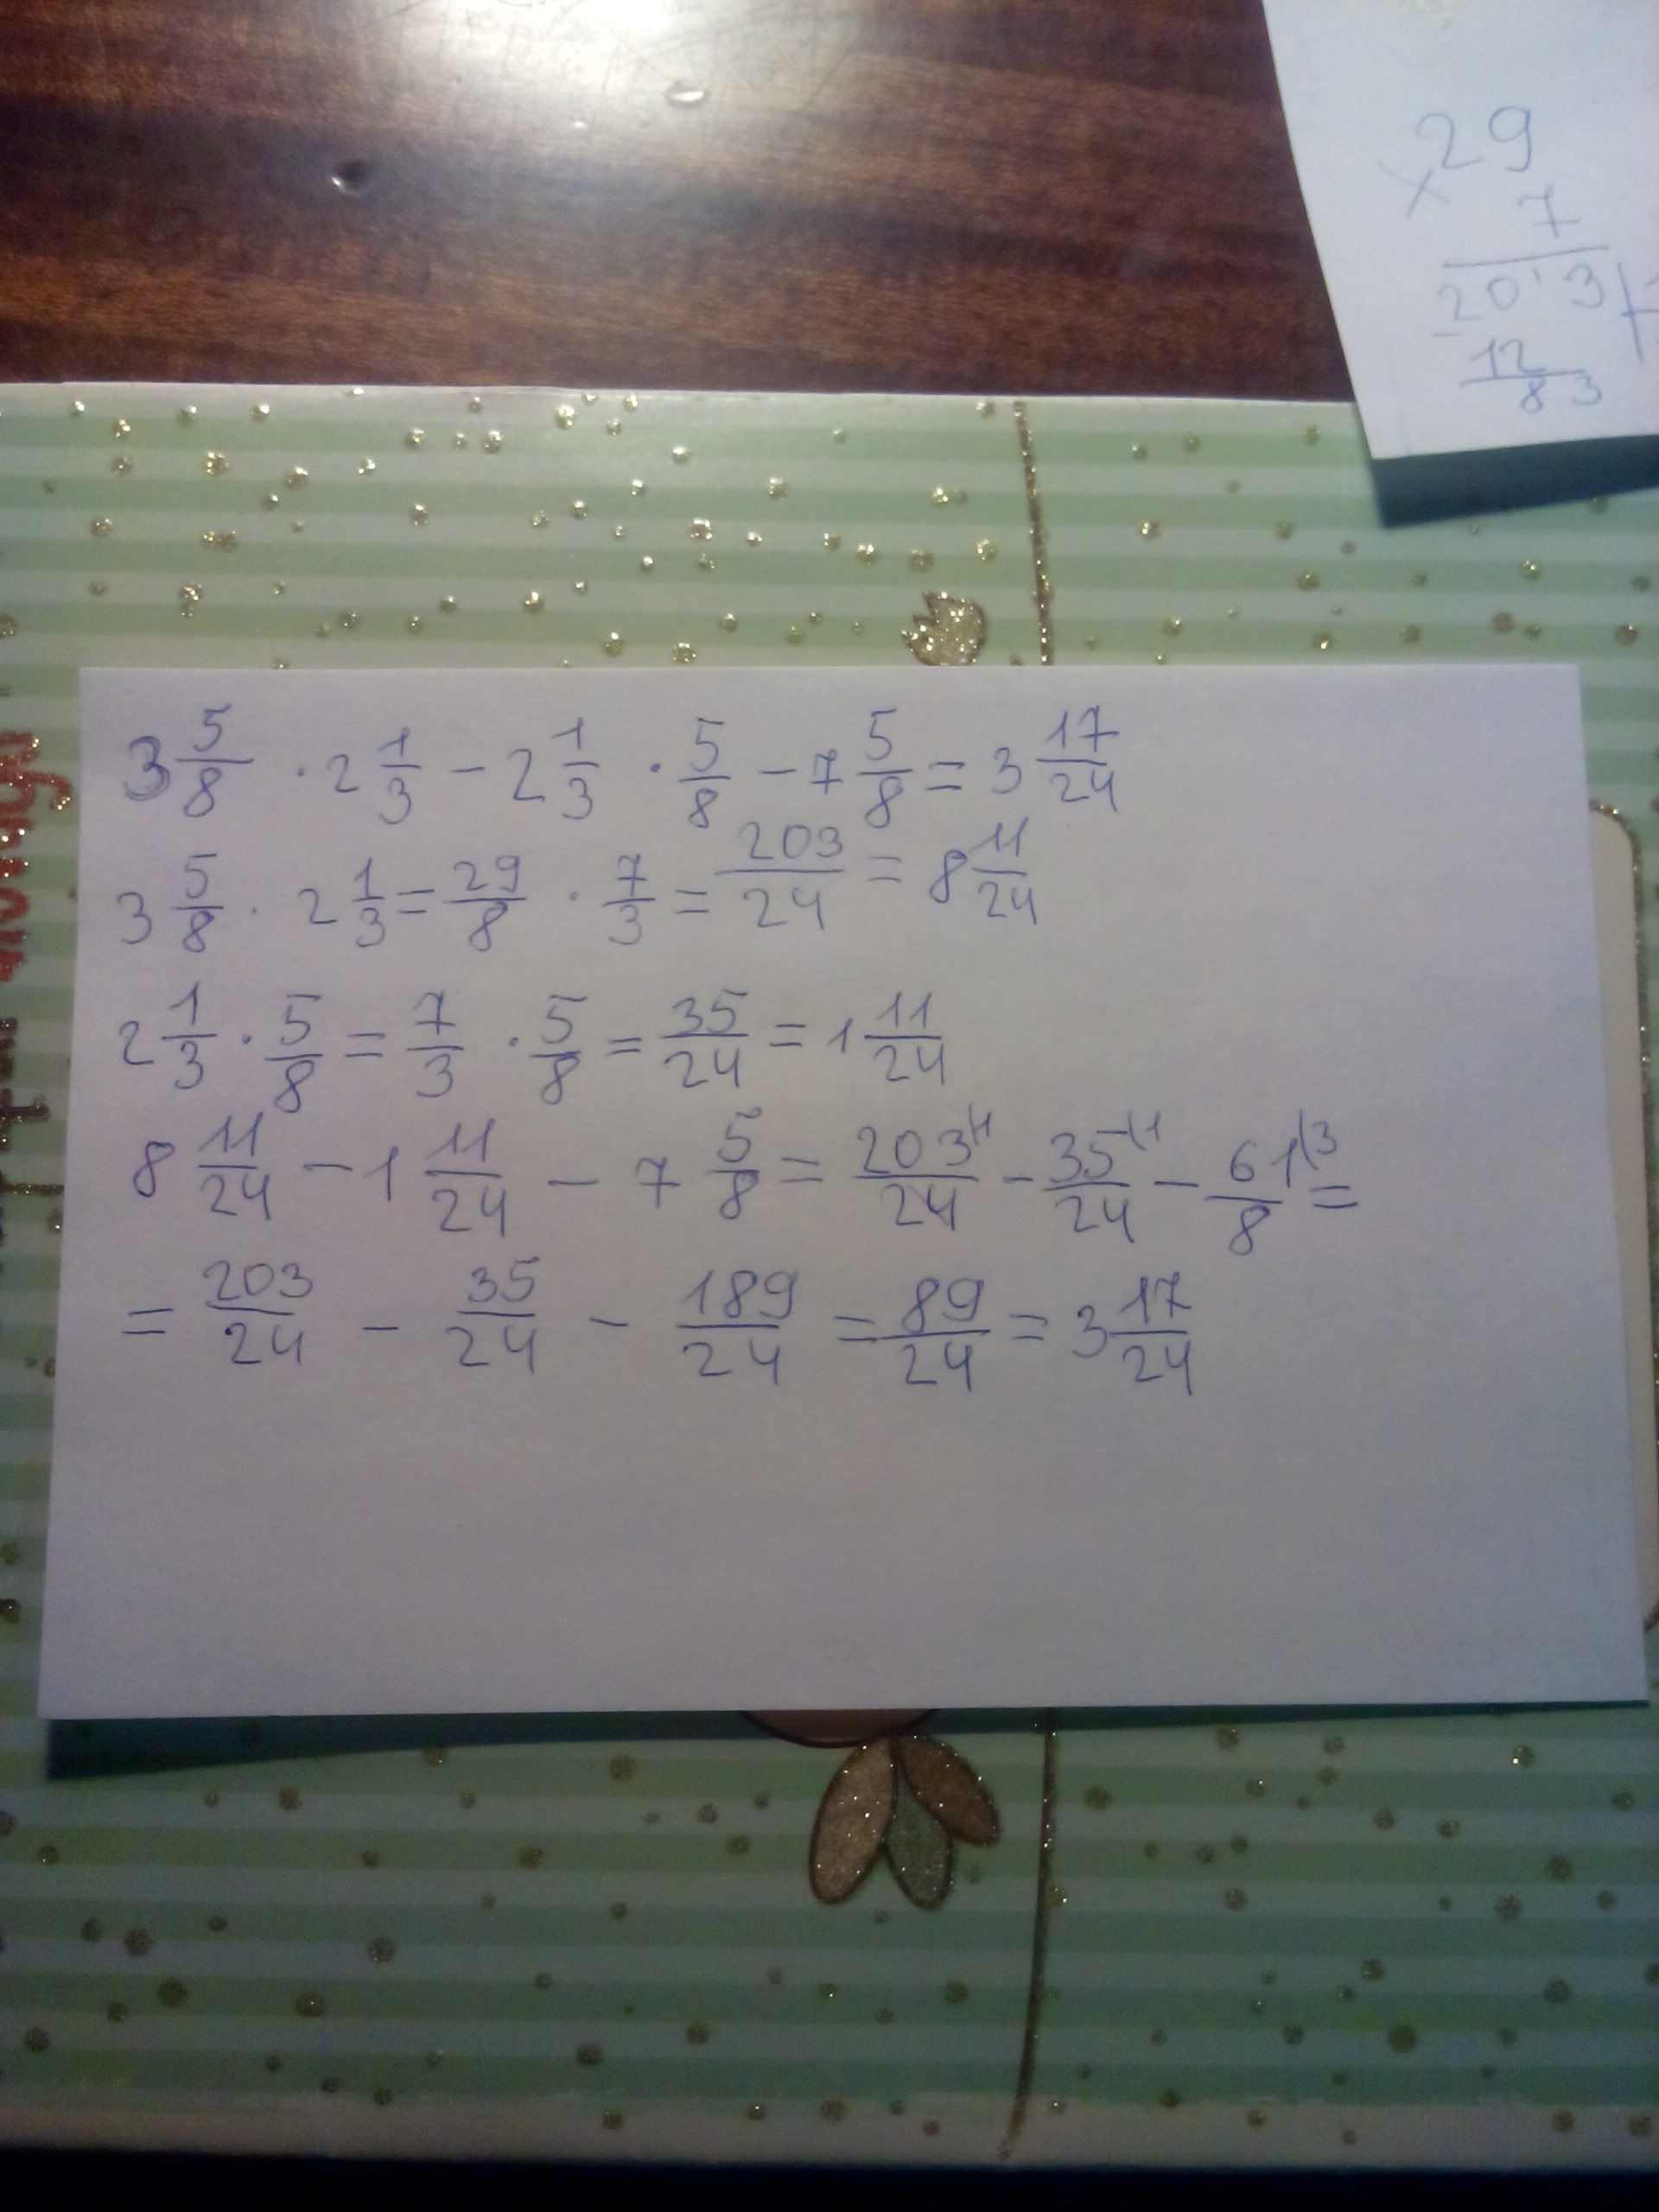 29
× 7
203
- 12
83
3 5/8 · 2 1/3 - 2 1/3 · 5/8 - 7 5/8 = 3 17/24
3 5/8 · 2 1/3 = 29/8 · 7/3 = 203/24 = 8 11/24
2 1/3 · 5/8 = 7/3 · 5/8 = 35/24 = 1 11/24
8 11/24 - 1 11/24 - 7 5/8 = 203(1/24 - 35(1/24 - 61(3/8 =
= 203/24 - 35/24 - 189/24 = 89/24 = 3 17/24